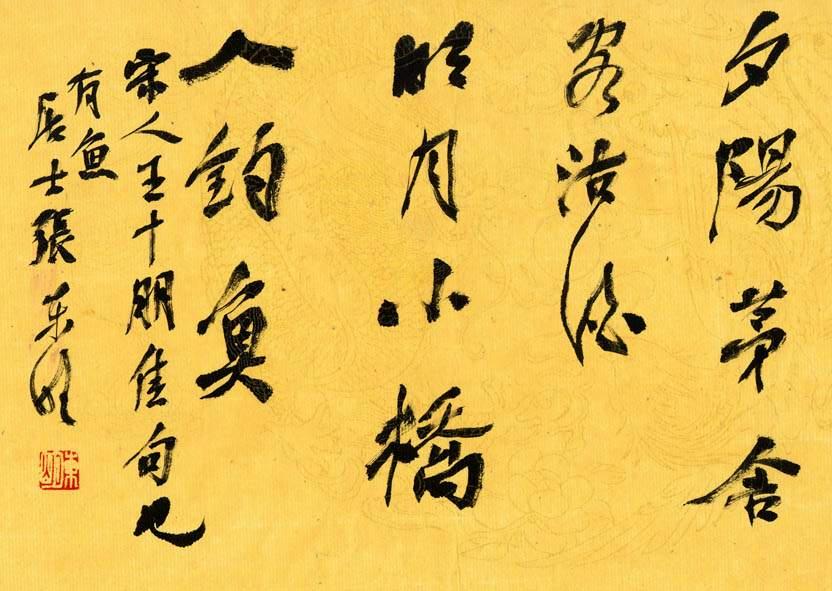 夕陽茅舍
客沽酒
明月小橋
人釣魚
宋人王十朋佳句也
有魚
居士張東明
東明